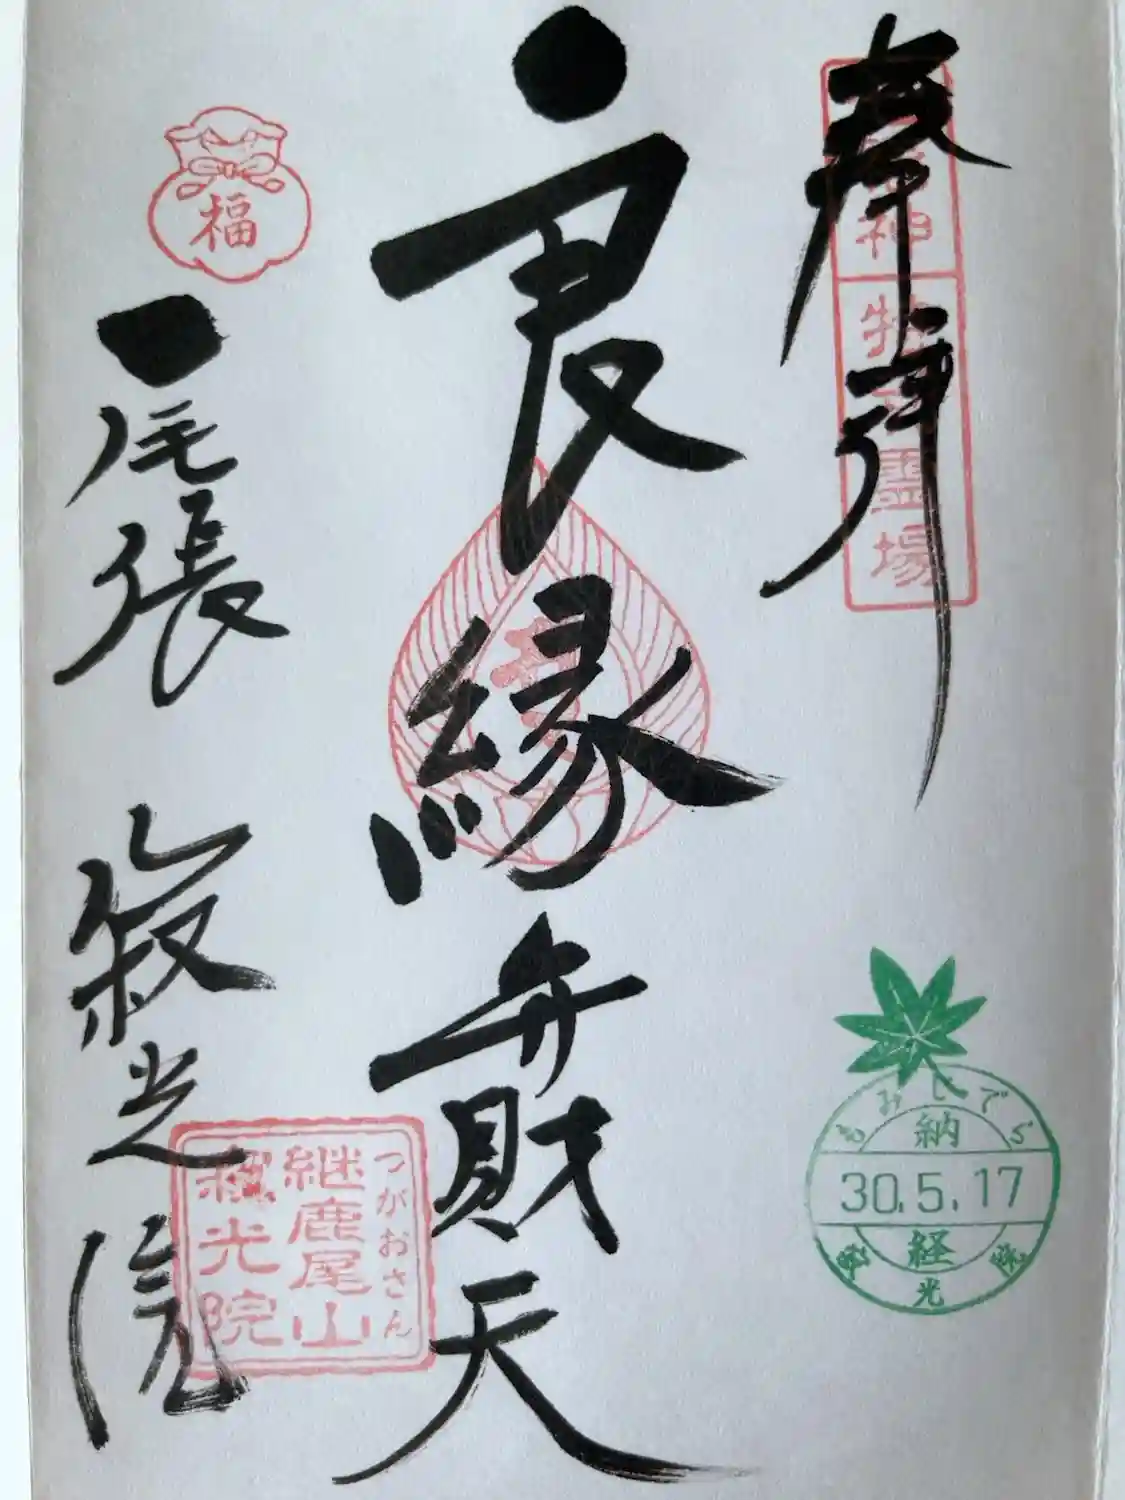 奉拝
七福神特別霊場
良縁
弁財天
福
尾張
寂光院
つがおさん
継鹿尾山
寂光院
もみじでら
納
30.5.17
経
寂光院